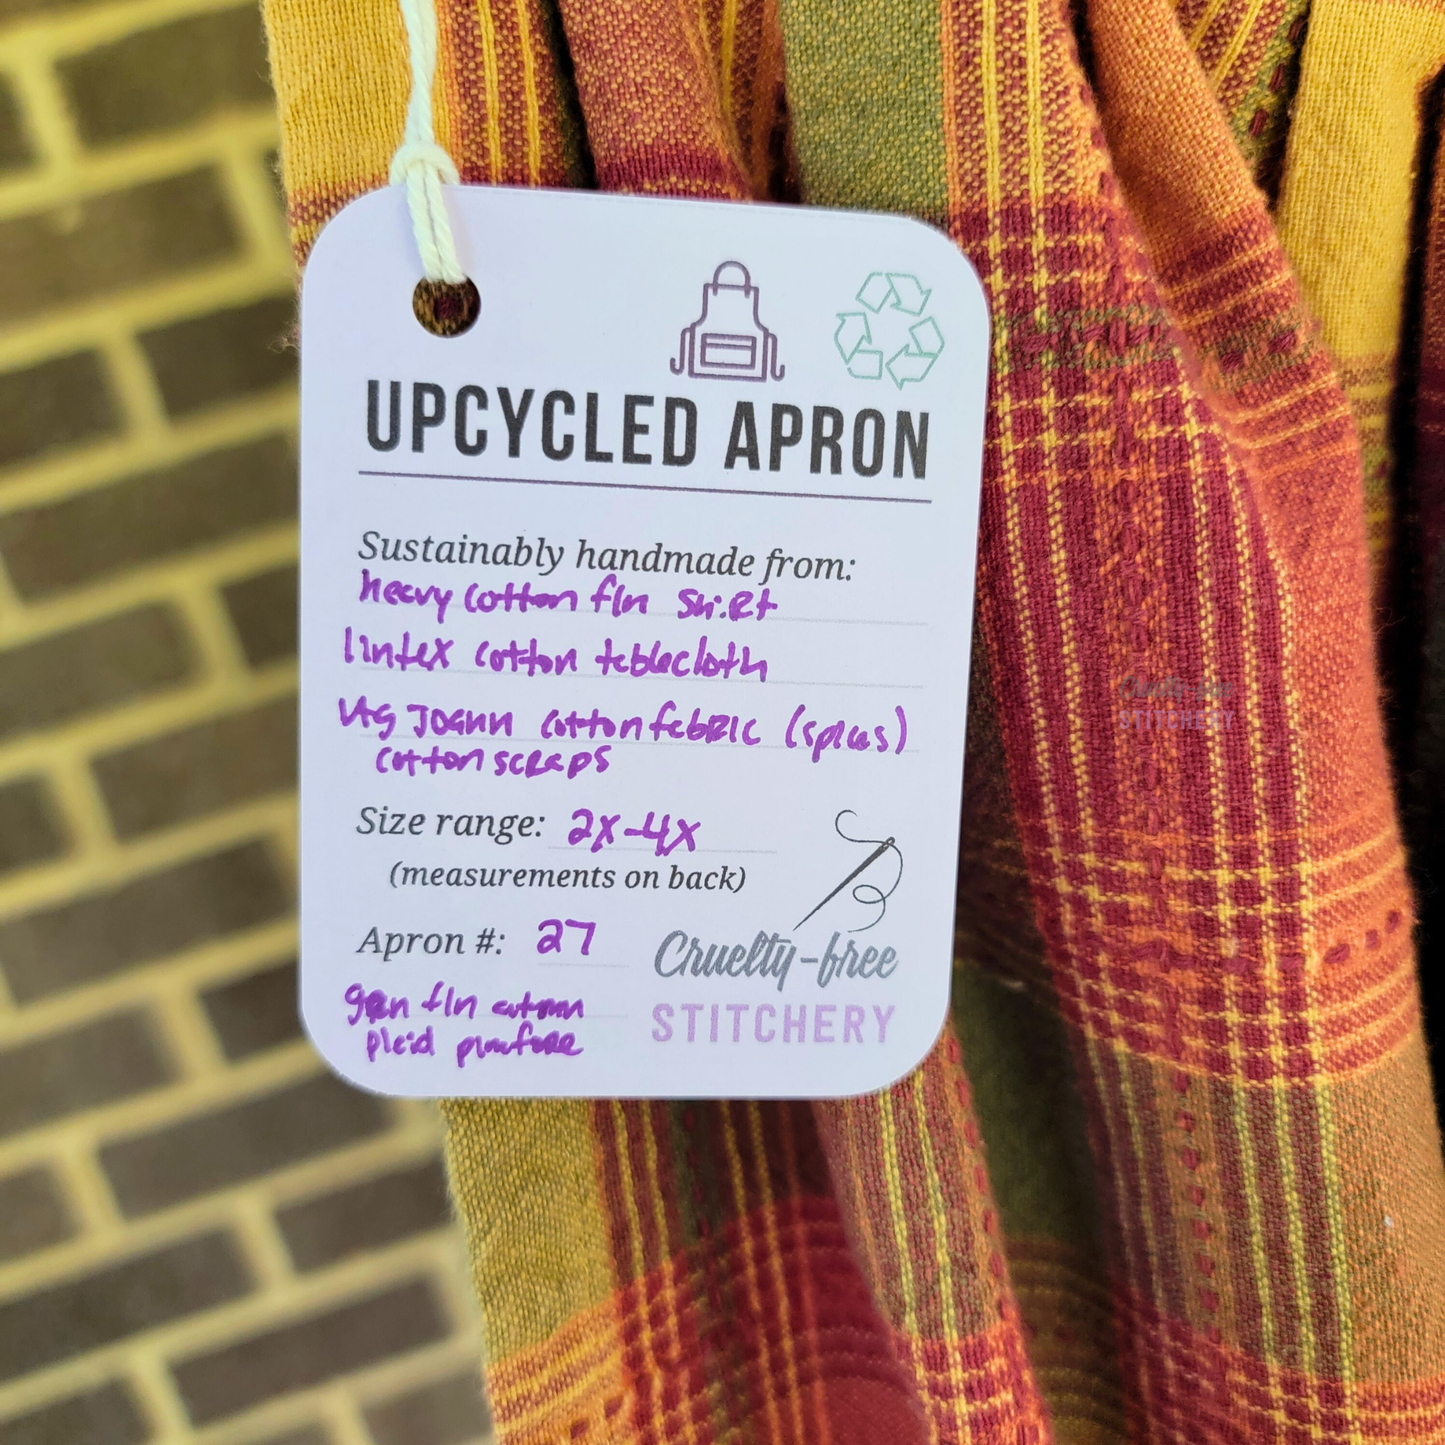 UPCYCLED APRON
Sustainably handmade from:
heavy cotton fln shirt
lintex cotton tablecloth
vtg Joann cotton fabric (spices)
cotton scraps
Size range: 2X-4X
(measurements on back)
Apron #: 27
Cruelty-free
STITCHERY
grn fln autumn
plaid pinafore
Cruelty-free
STITCHERY